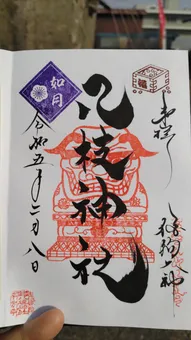 奉拝
八枝神社
狛狗大神
如月
令和五年二月八日